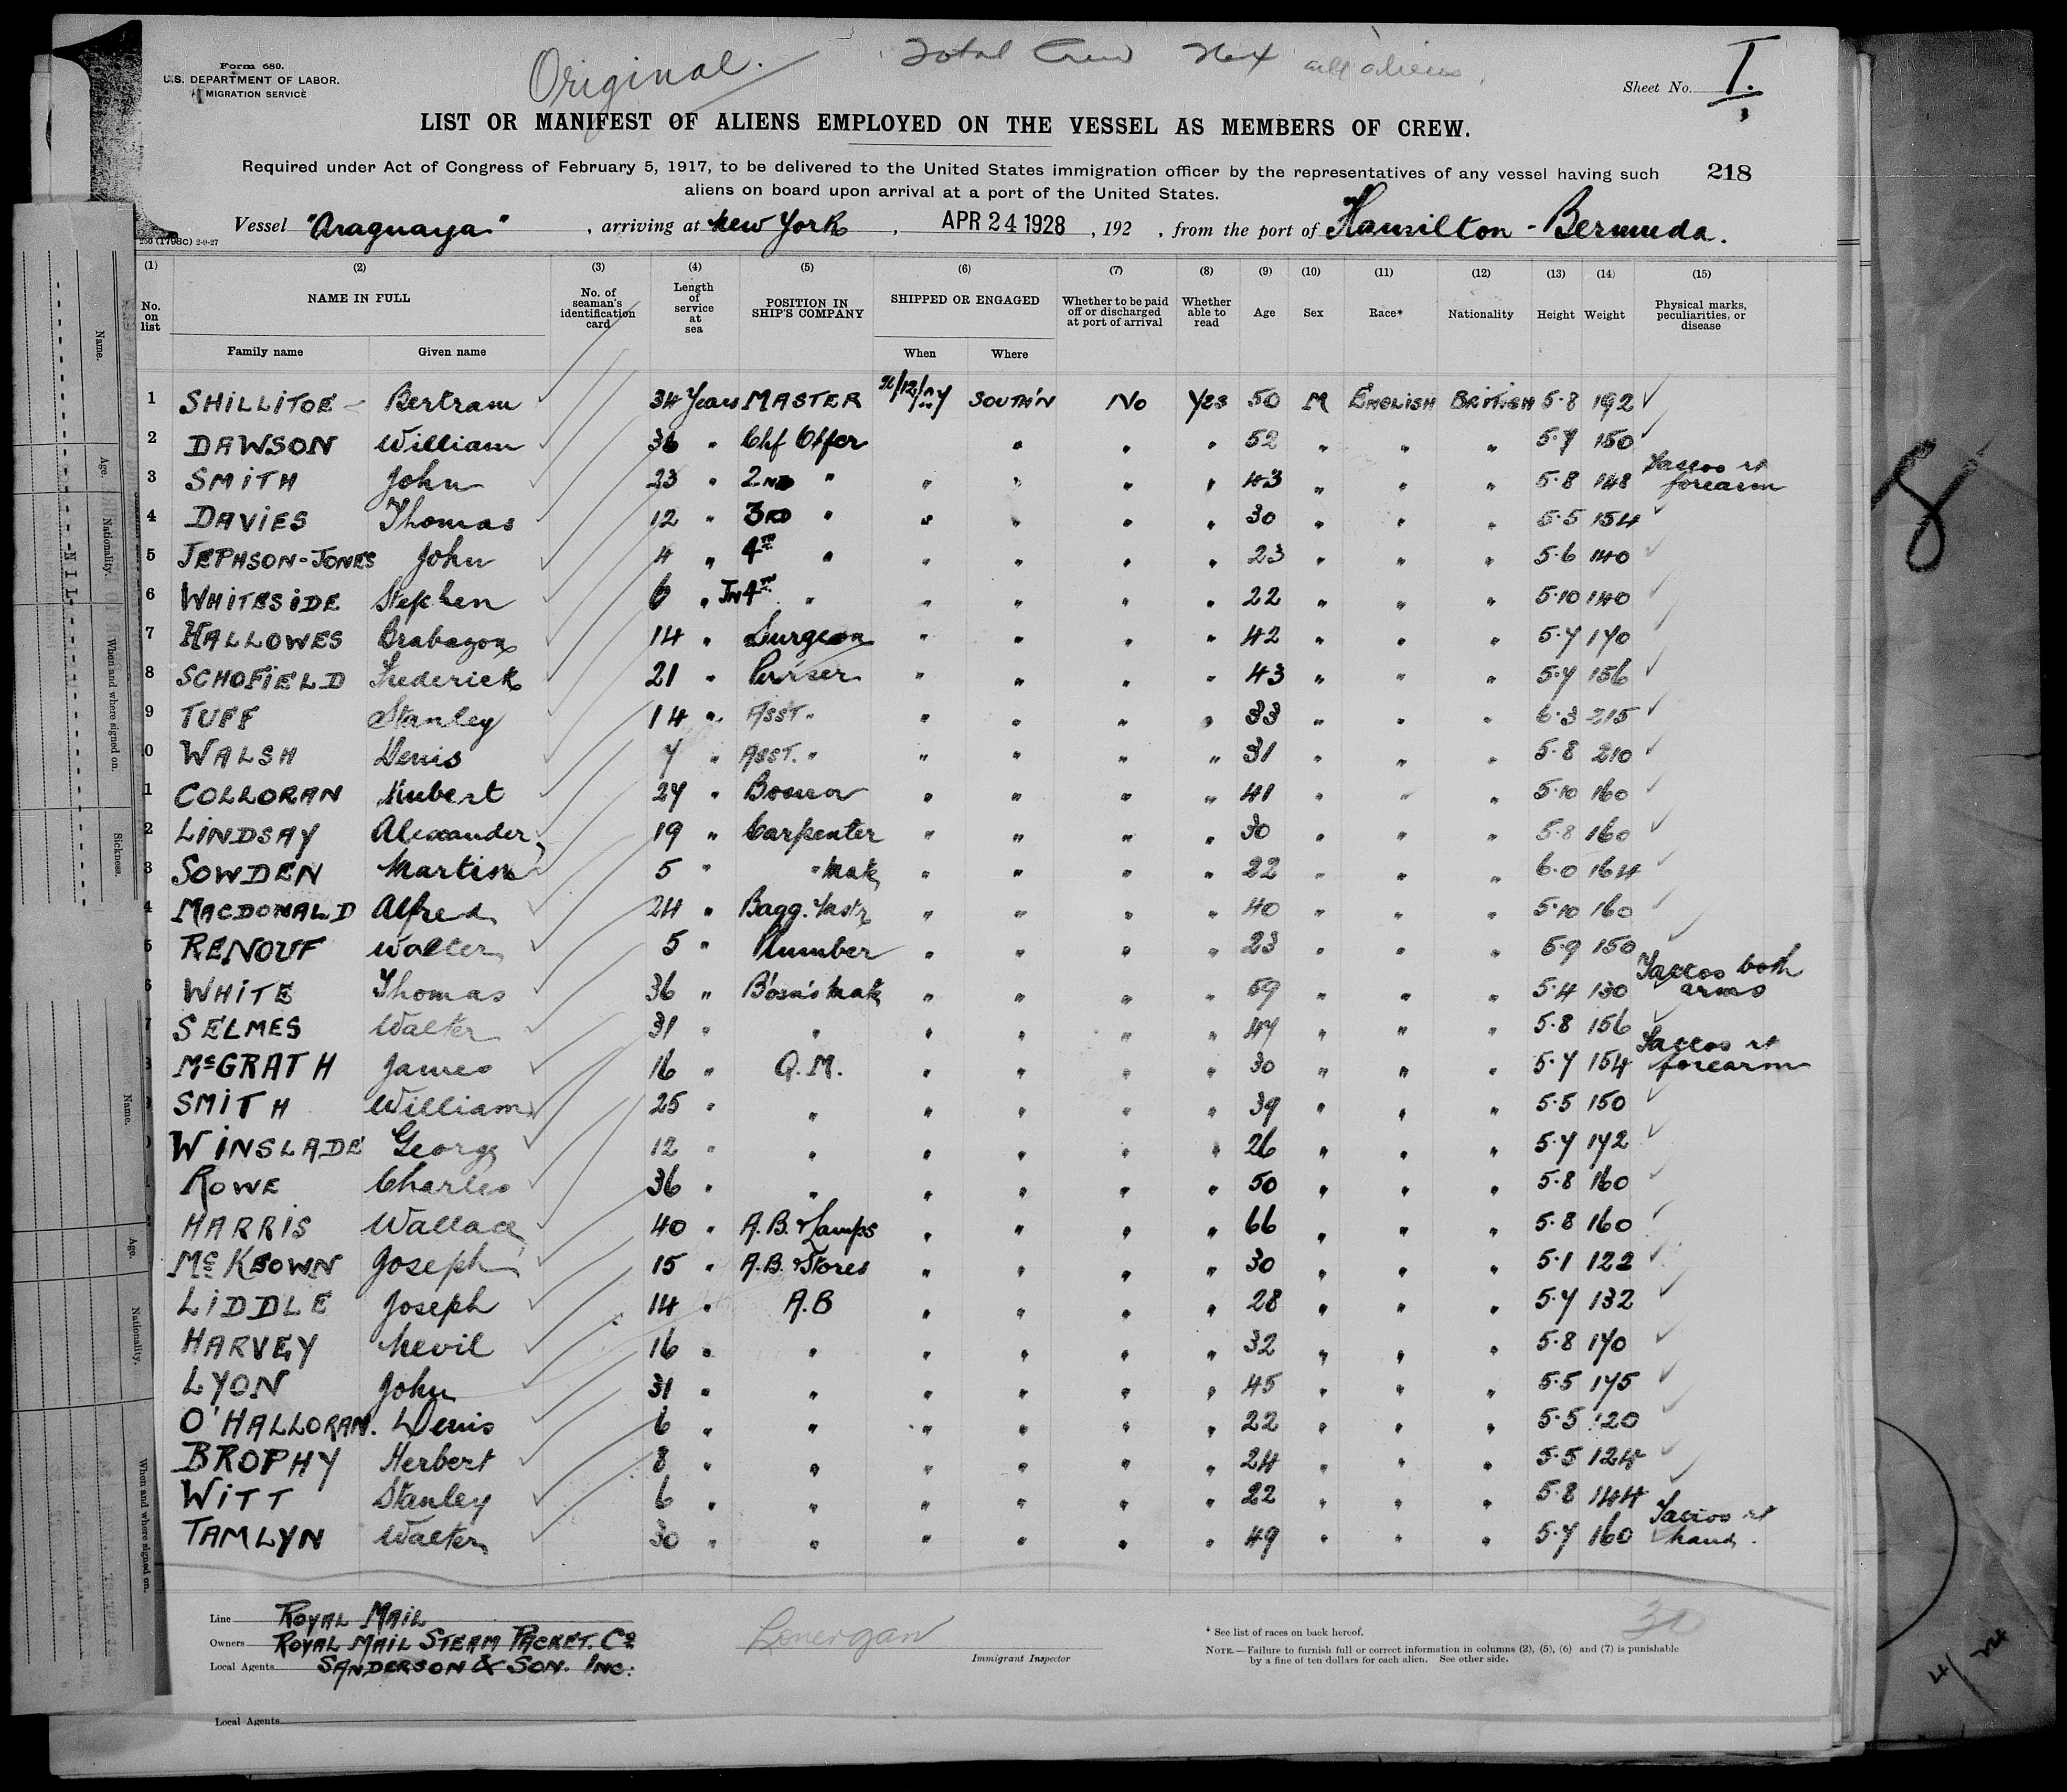 Original. Total Crew 264 all aliens.
Form 680.
U.S. DEPARTMENT OF LABOR.
MIGRATION SERVICE
Sheet No. I.
LIST OR MANIFEST OF ALIENS EMPLOYED ON THE VESSEL AS MEMBERS OF CREW.
Required under Act of Congress of February 5, 1917, to be delivered to the United States immigration officer by the representatives of any vessel having such
aliens on board upon arrival at a port of the United States.
218
Vessel "Araguaya", arriving at New York, APR 24 1928, 192 , from the port of Hamilton - Bermuda.
(1) (2) (3) (4) (5) (6) (7) (8) (9) (10) (11) (12) (13) (14) (15)
No. on list NAME IN FULL No. of seaman's identification card Length of service at sea POSITION IN SHIP'S COMPANY SHIPPED OR ENGAGED Whether to be paid off or discharged at port of arrival Whether able to read Age Sex Race* Nationality Height Weight Physical marks, peculiarities, or disease
Family name Given name When Where
1 SHILLITOE Bertram 34 Years MASTER SOUTH'N No Yes 50 M ENGLISH BRITISH 5·8 192
2 DAWSON William 36 " Chf Offcr " " " 52 " " " 5·7 150
3 SMITH John 23 " 2ND " " " " " 43 " " " 5·8 148 Tattoo rt forearm
4 DAVIES Thomas 12 " 3RD " " " " " 30 " " " 5·5 154
5 JEPHSON-JONES John 4 " 4TH " " " " " 23 " " " 5·6 140
6 WHITESIDE Stephen 6 " JN 4TH " " " " " 22 " " " 5·10 140
7 HALLOWES Brabazon 14 " Surgeon " " " " 42 " " " 5·7 170
8 SCHOFIELD Frederick 21 " Purser " " " " 43 " " " 5·7 156
9 TUFF Stanley 14 " ASST. " " " " " 33 " " " 6·3 215
0 WALSH Denis 7 " ASST. " " " " " 31 " " " 5·8 210
1 COLLORAN Hubert 27 " Bosun " " " " 41 " " " 5·10 160
2 LINDSAY Alexander 19 " Carpenter " " " " 30 " " " 5·8 160
3 SOWDEN Martin 5 " " Mate " " " " 22 " " " 6·0 164
4 MACDONALD Alfred 24 " Bagg. Mstr " " " " 40 " " " 5·10 160
5 RENOUF Walter 5 " Plumber " " " " 23 " " " 5·9 150
6 WHITE Thomas 36 " Bosn's Mate " " " " 59 " " " 5·4 130 Tattoo both arms
7 SELMES Walter 31 " " " " " " 47 " " " 5·8 156
8 McGRATH James 16 " Q.M. " " " " 30 " " " 5·7 154 Tattoo rt forearm
9 SMITH William 25 " " " " " " 39 " " " 5·5 150
0 WINSLADE George 12 " " " " " " 26 " " " 5·7 172
ROWE Charles 36 " " " " " " 50 " " " 5·8 160
HARRIS Wallace 40 " A.B. & Lamps " " " " 66 " " " 5·8 160
McKEOWN Joseph 15 " A.B. & Stores " " " " 30 " " " 5·1 122
LIDDLE Joseph 14 " A.B " " " " 28 " " " 5·7 132
HARVEY Nevil 16 " " " " " " 32 " " " 5·8 170
LYON John 31 " " " " " " 45 " " " 5·5 175
O'HALLORAN. Denis 6 " " " " " " 22 " " " 5·5 120
BROPHY Herbert 8 " " " " " " 24 " " " 5·5 124
WITT Stanley 6 " " " " " " 22 " " " 5·8 144
TAMLYN Walter 30 " " " " " " 49 " " " 5·7 160 Tattoo rt hand.
Line ROYAL MAIL
Owners ROYAL MAIL STEAM PACKET. Co.
Local Agents SANDERSON & SON. INC:
Lonergan
Immigrant Inspector
* See list of races on back hereof.
NOTE.—Failure to furnish full or correct information in columns (2), (5), (6) and (7) is punishable
by a fine of ten dollars for each alien. See other side.
30
Local Agents
Name.
Age.
Nationality.
When and where signed on.
Sickness.
NIL
Name.
Age.
Nationality.
When and where signed on.
8
4/24